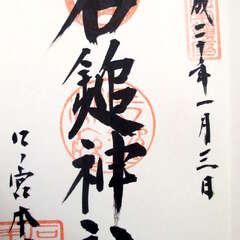 成二十年一月三日
石鎚神社
口ノ宮本